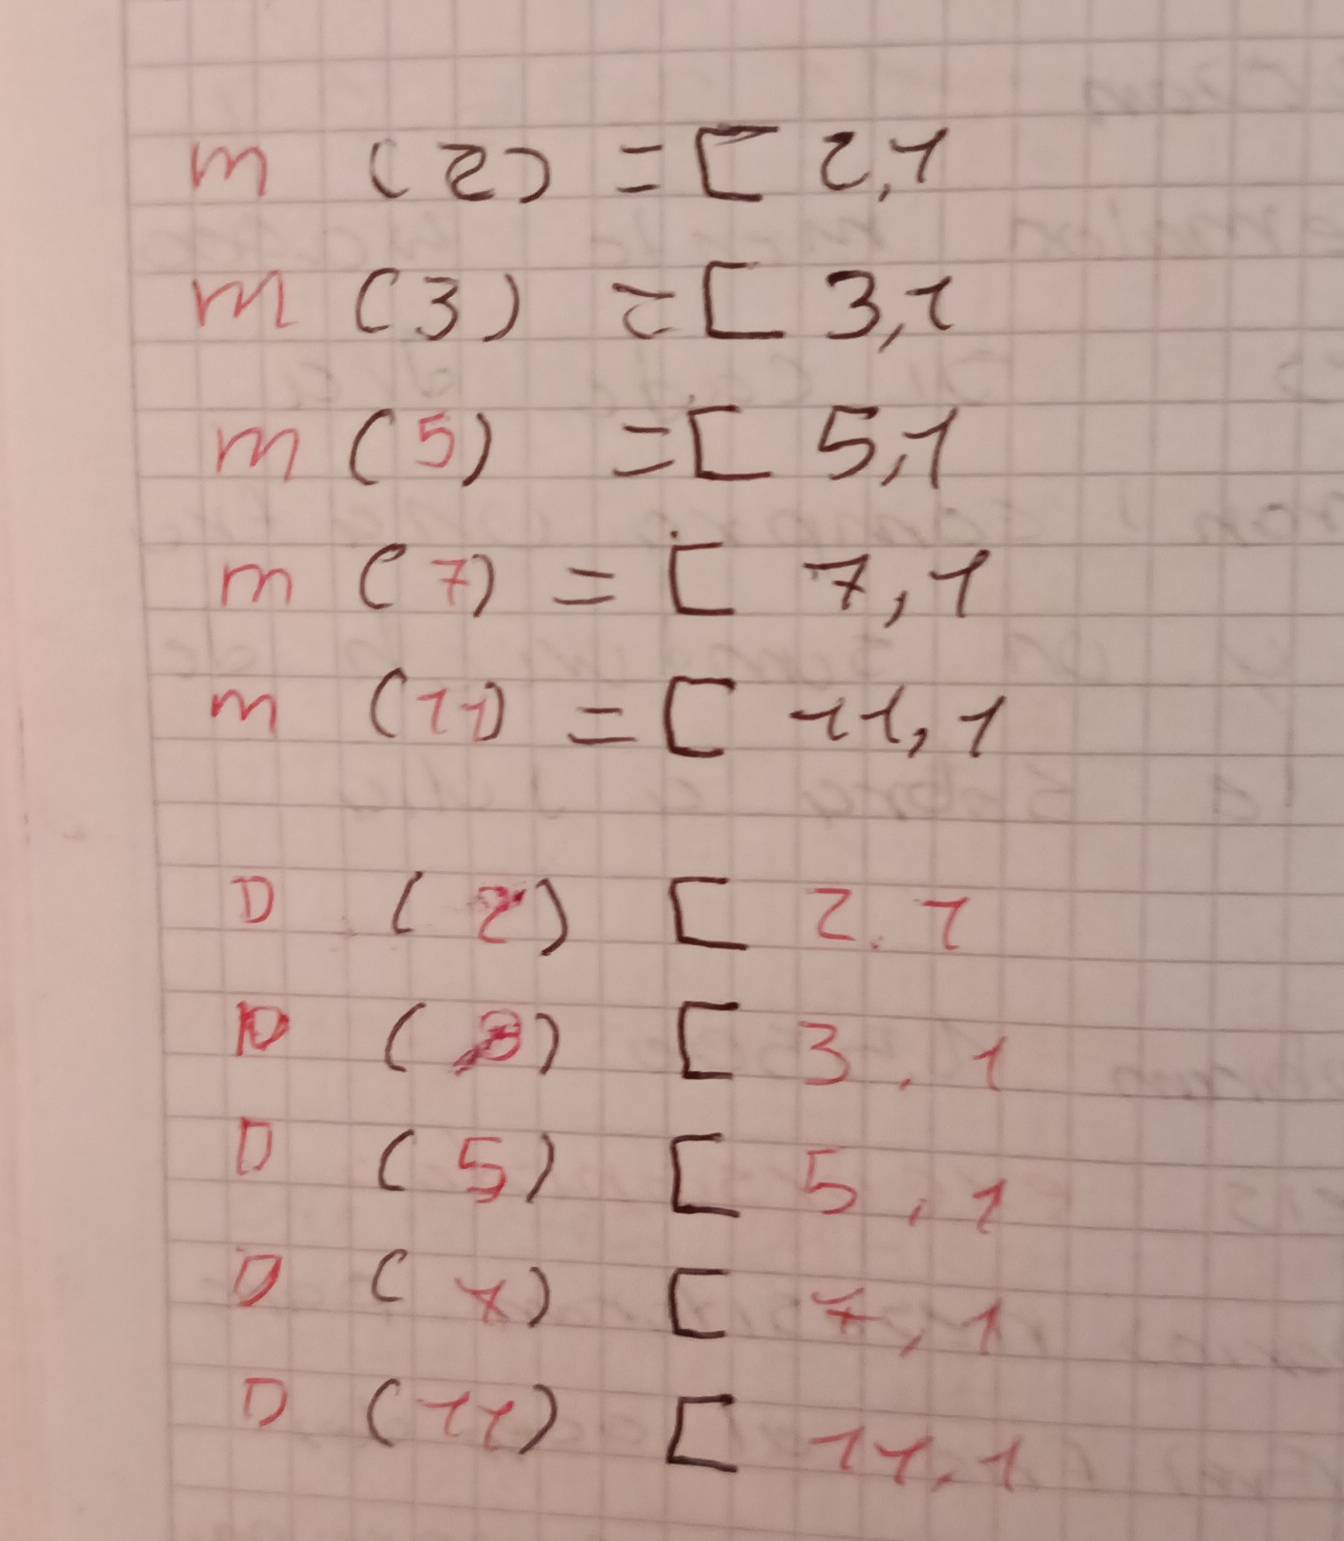 m (2) = [ 2,1
m (3) = [ 3,1
m (5) = [ 5,1
m (7) = [ 7,1
m (11) = [ 11,1
D (2) [ 2.1
D (3) [ 3.1
D (5) [ 5,1
D (7) [ 7,1
D (11) [ 11.1